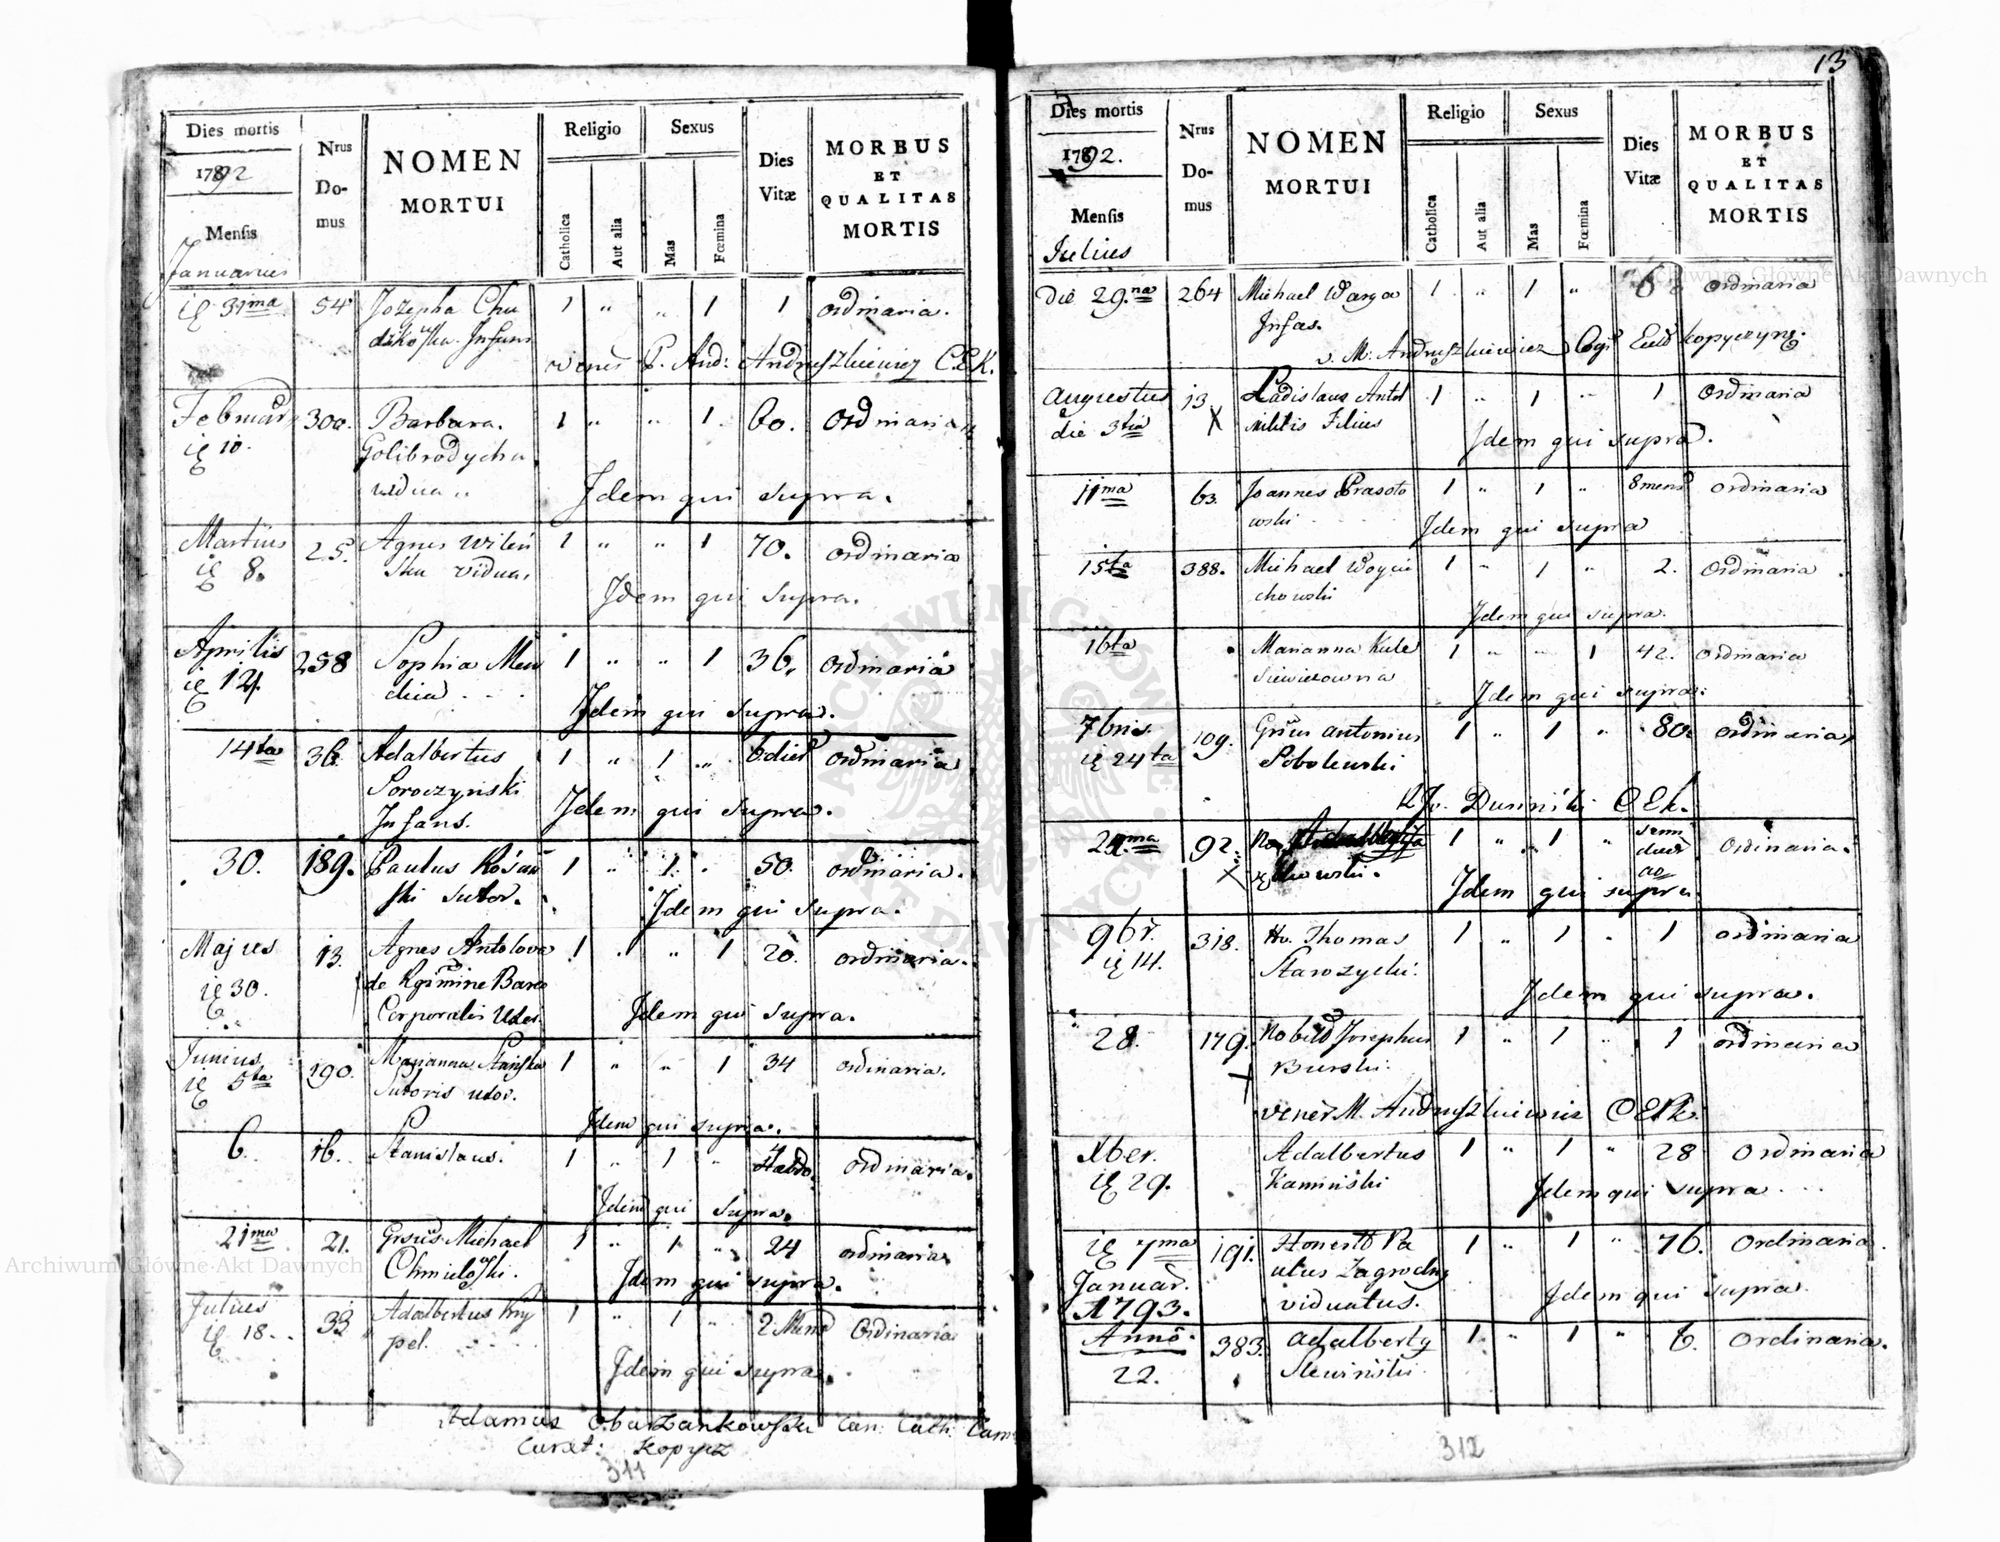 Dies mortis
1792
Mensis
Januarius
Nrus Domus
NOMEN
MORTUI
Religio
Catholica
Aut alia
Sexus
Mas
Fœmina
Dies
Vitæ
MORBUS
ET
QUALITAS
MORTIS
31ma 54 Jozepha Chu 1 " " 1 1 ordinaria.
Infans
P. And: Andryszkiewicz C.E.K.
Februar 300. Barbara 1 " " 1 60. Ordinaria
10. Golibrodycha
vidua
Idem qui supra.
Martius 25. Agnes Wilen 1 " " 1 70. ordinaria
8. ska vidua.
Idem qui supra.
Aprilis 258 Sophia Men 1 " " 1 36. ordinaria
12.
Idem qui supra.
14ta 36. Adalbertus 1 " 1 " 6 dier ordinaria
Soroczynski
Infans.
Idem qui supra.
30. 189. Paulus 1 " 1 " 50. ordinaria.
ski sutor.
Idem qui supra.
Majus 13. Agnes Antolova 1 " " 1 20. ordinaria.
30. de
Corporalis Uxor.
Idem qui supra.
Junius 190. Marianna 1 " " 1 34 ordinaria.
5ta Sutoris uxor.
Idem qui supra.
6. 16. Stanislaus. 1 " 1 " ordinaria.
Idem qui supra.
21ma 21. Grsus Michael 1 " 1 " 24 ordinaria
Chmielowski.
Idem qui supra.
Julius 33 Adalbertus Kny 1 " 1 " 2 Mens Ordinaria
18. pel.
Idem qui supra.
Adamus Obarzankowski Can: Cath: Cam
Curat: Kopycz
311
13
Dies mortis
1792.
Mensis
Julius
Nrus Domus
NOMEN
MORTUI
Religio
Catholica
Aut alia
Sexus
Mas
Fœmina
Dies
Vitæ
MORBUS
ET
QUALITAS
MORTIS
Die 29.na 264 Michael Warga 1 " 1 " 6 ordinaria
Infas.
v. M. Andryszkiewicz
Augustus 13 Ladislaus Antol 1 " 1 " 1 Ordinaria
die 3tia militis Filius
Idem qui supra.
11ma 63. Joannes Prasoto 1 " 1 " 8 mens ordinaria
wski
Idem qui supra
15ta 388. Michael Woyci 1 " 1 " 2. Ordinaria
chowski
Idem qui supra.
16ta Marianna Kule 1 " " 1 42. ordinaria
siewiczowna
Idem qui supra.
7bris 109. Grsus Antonius 1 " 1 " 80. ordinaria
24ta Sobolewski
Duninski C.E.K.
92. 1 " 1 " ordinaria
Idem qui supra.
9br. 318. Thomas 1 " 1 " 1 ordinaria
14. Starzycki.
Idem qui supra.
28. 179. Josephus 1 " 1 " 1 ordinaria
Burski.
Vener M. Andryszkiewicz
Xber. Adalbertus 1 " 1 " 28 Ordinaria
29. Kaminski
Idem qui supra
7ma 191. Honest Pa 1 " 1 " 76. Ordinaria.
Januar. ulus Zagrodny
1793. viduatus.
Idem qui supra.
Anno 383. Adalberty 1 " 1 " 6. Ordinaria.
22. Slewinski
312
Archiwum Główne Akt Dawnych
Archiwum Główne Akt Dawnych
ARCHIWUM GŁÓWNE AKT DAWNYCH